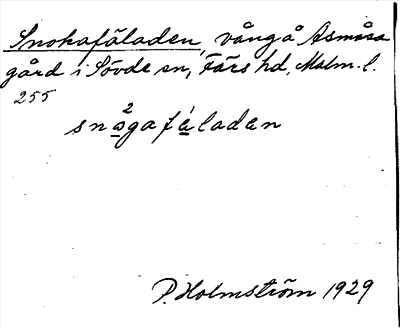 Snokafäladen, vång å Asmåsa
gård i Sövde sn, Färs hd, Malm. l.
255
2
snogafäladen
P. Holmström 1929